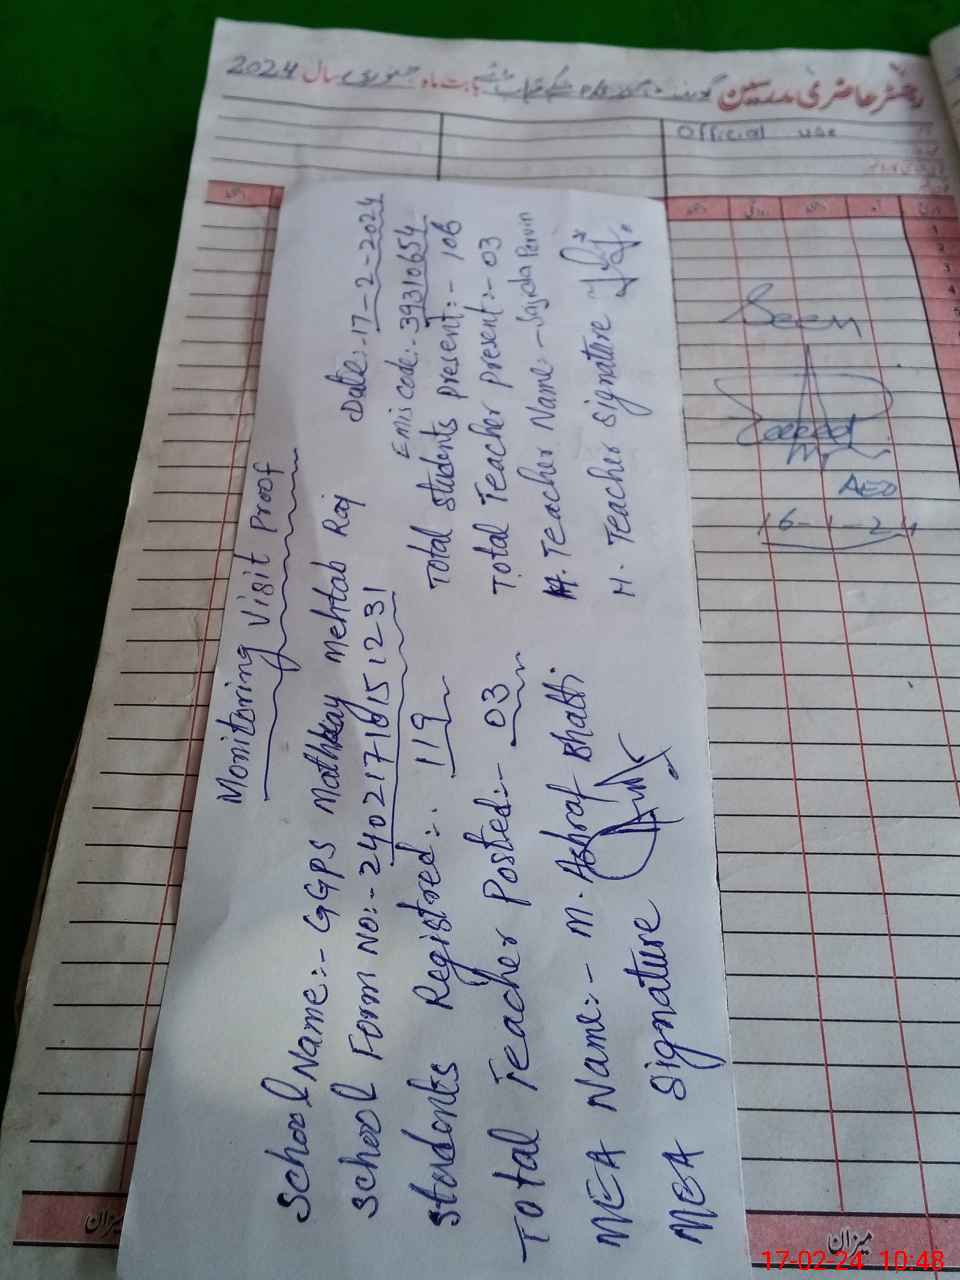 رجسٹر حاضری مدرسین
بابت ماہ جنوری سال 2024
Official use
Monitoring Visit Proof
School Name:- GGPS Mathkay Mehtab Raj
Date:-17-2-2024
School Form No:-24021716151231
Emis code:-39310654
Students Registred:- 119
Total Students present:- 106
Total Teacher Posted:- 03
Total Teacher present:-03
MEA Name:- M. Ashraf Bhatti
H. Teacher Name:-Sajida Parvin
MEA Signature
H. Teacher Signature
Seen
AEO
16-1-24
میزان
میزان
17-02-24 10:48